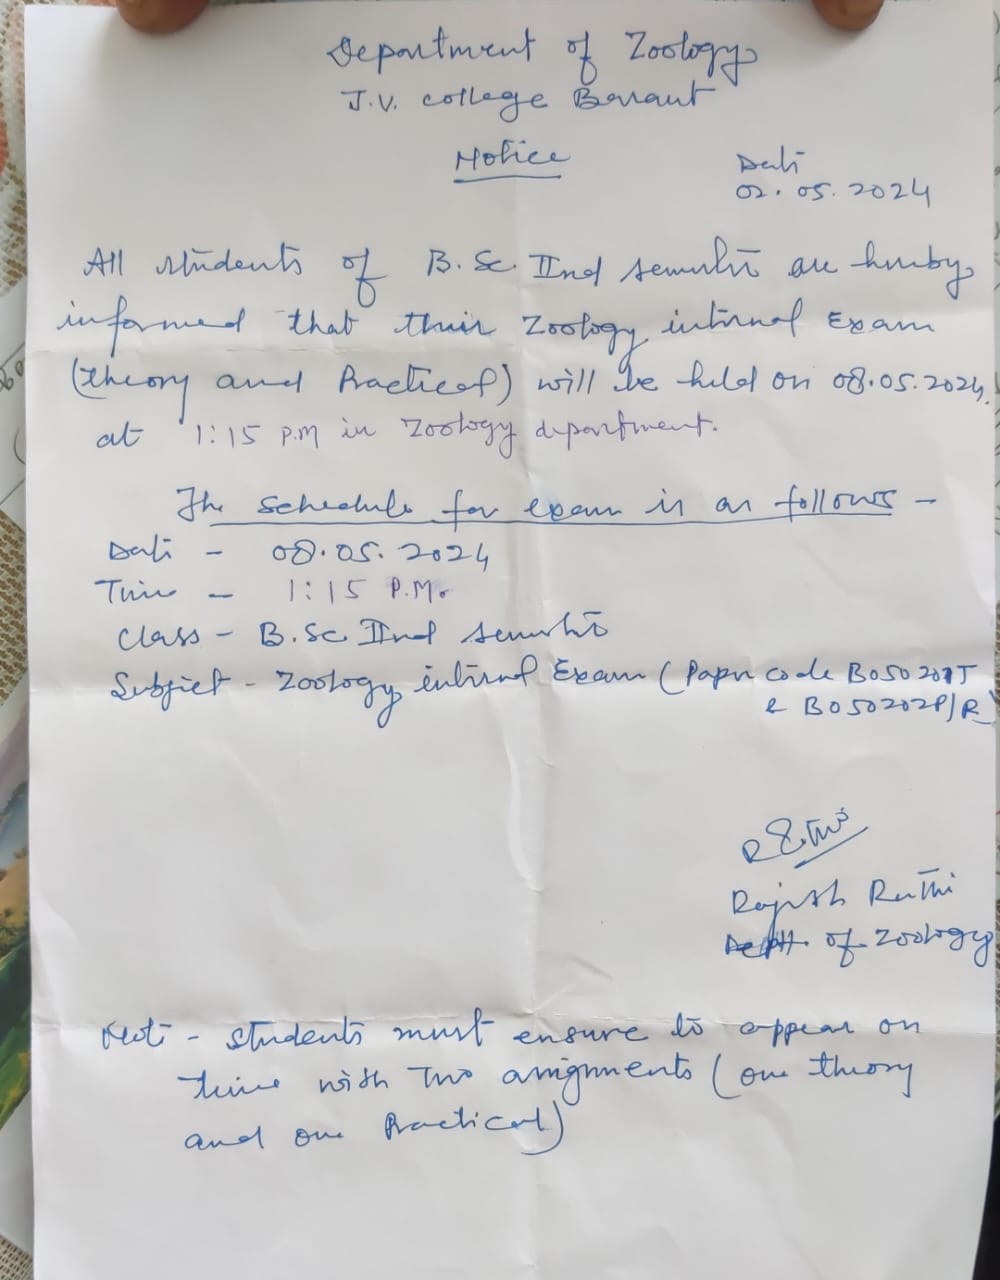 Department of Zoology
J.V. College Baraut
Notice
Date
02.05.2024
All students of B.Sc. IInd semester are hereby
informed that their Zoology internal Exam
(theory and Practical) will be held on 08.05.2024,
at 1:15 P.M in Zoology department.
The schedule for exam is as follows -
Date - 08.05.2024
Time - 1:15 P.M.
Class - B.Sc IInd semester
Subject - Zoology internal Exam (Paper code B050201T
& B050202P/R)
Rajesh Rathi
Deptt. of Zoology
Note - Students must ensure to appear on
time with two assignments (one theory
and one Practical)